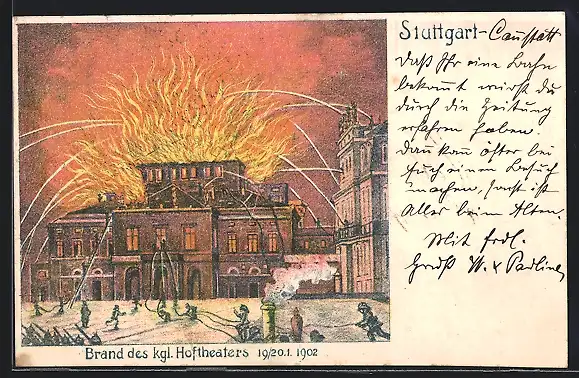 Stuttgart-Cannstatt
Daß Ihr eine Bahn
bekommt wirst du
durch die Zeitung
erfahren haben.
Dann kann öfter bei
Euch einen Besuch
machen, sonst ist
Alles beim Alten.
Mit frdl.
Gruß W. & Pauline
Brand des kgl. Hoftheaters 19/20.1. 1902